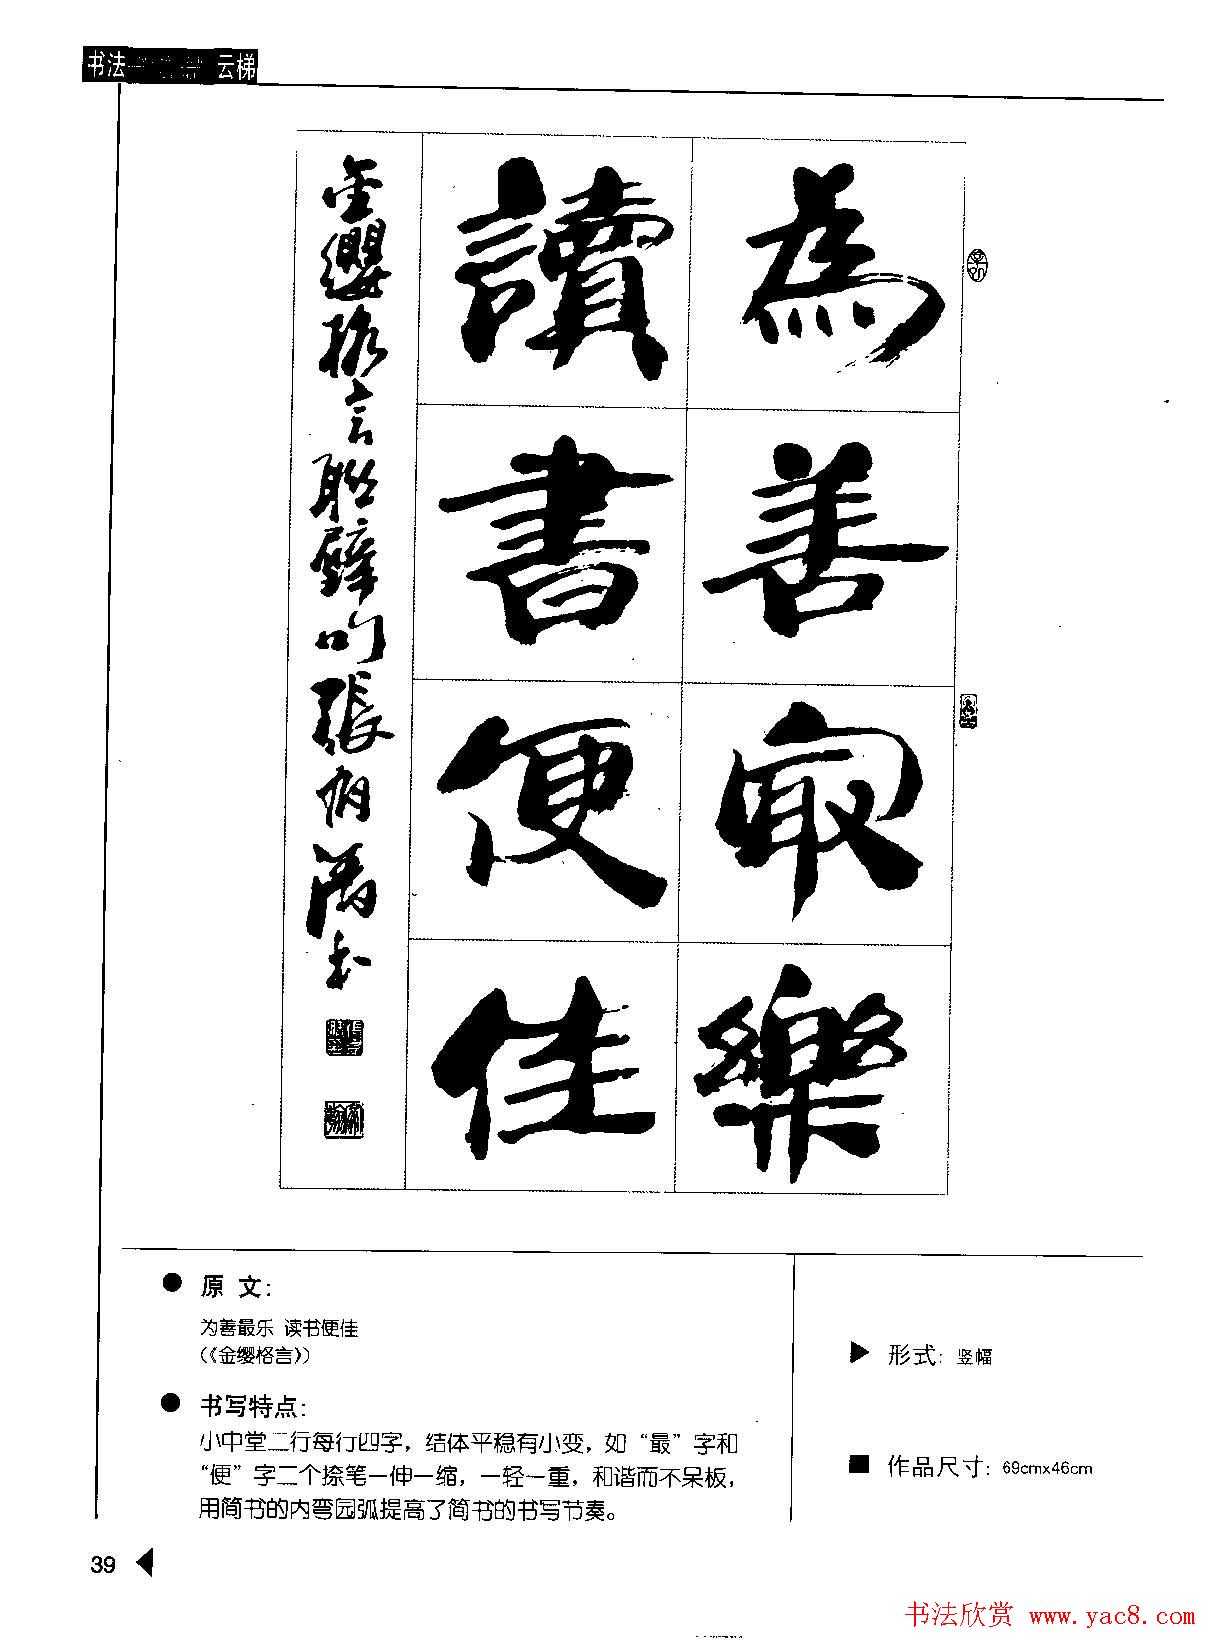 书法 云梯
為善最樂
讀書便佳
金纓格言聯璧句張有清书
原 文:
为善最乐 读书便佳
(《金缨格言》)
书写特点:
小中堂二行每行四字，结体平稳有小变，如“最”字和
“便”字二个捺笔一伸一缩，一轻一重，和谐而不呆板，
用简书的内弯园弧提高了简书的书写节奏。
形式: 竖幅
作品尺寸: 69cmx46cm
39
书法欣赏 www.yac8.com